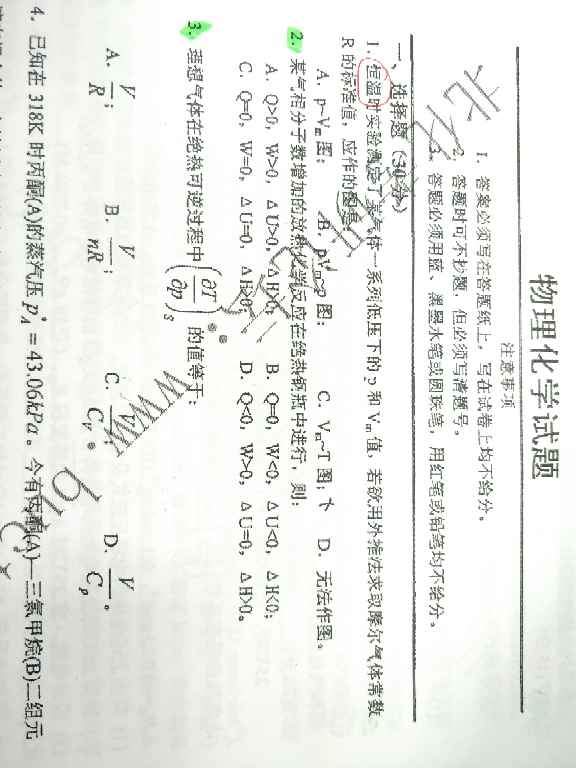 物理化学试题
注意事项
1. 答案必须写在答题纸上，写在试卷上均不给分。
2. 答题时可不抄题，但必须写清题号。
3. 答题必须用蓝、黑墨水笔或圆珠笔，用红笔或铅笔均不给分。
一、选择题（30分）
1. 恒温时实验测定了某气体一系列低压下的 p 和 Vm 值，若欲用外推法求取摩尔气体常数
R 的标准值，应作的图是：
A. p~Vm 图； B. pVm~p 图； C. Vm~T 图； D. 无法作图。
2. 某气相分子数增加的放热化学反应在绝热钢瓶中进行，则：
A. Q>0, W>0, ΔU>0, ΔH>0； B. Q=0, W<0, ΔU<0, ΔH<0；
C. Q=0, W=0, ΔU=0, ΔH>0； D. Q<0, W>0, ΔU=0, ΔH>0。
3. 理想气体在绝热可逆过程中 (∂T/∂p)S 的值等于：
A. V/R； B. V/nR； C. V/CV； D. V/Cp。
4. 已知在 318K 时丙酮(A)的蒸汽压 pA* = 43.06kPa。今有丙酮(A)—三氯甲烷(B)二组元
www